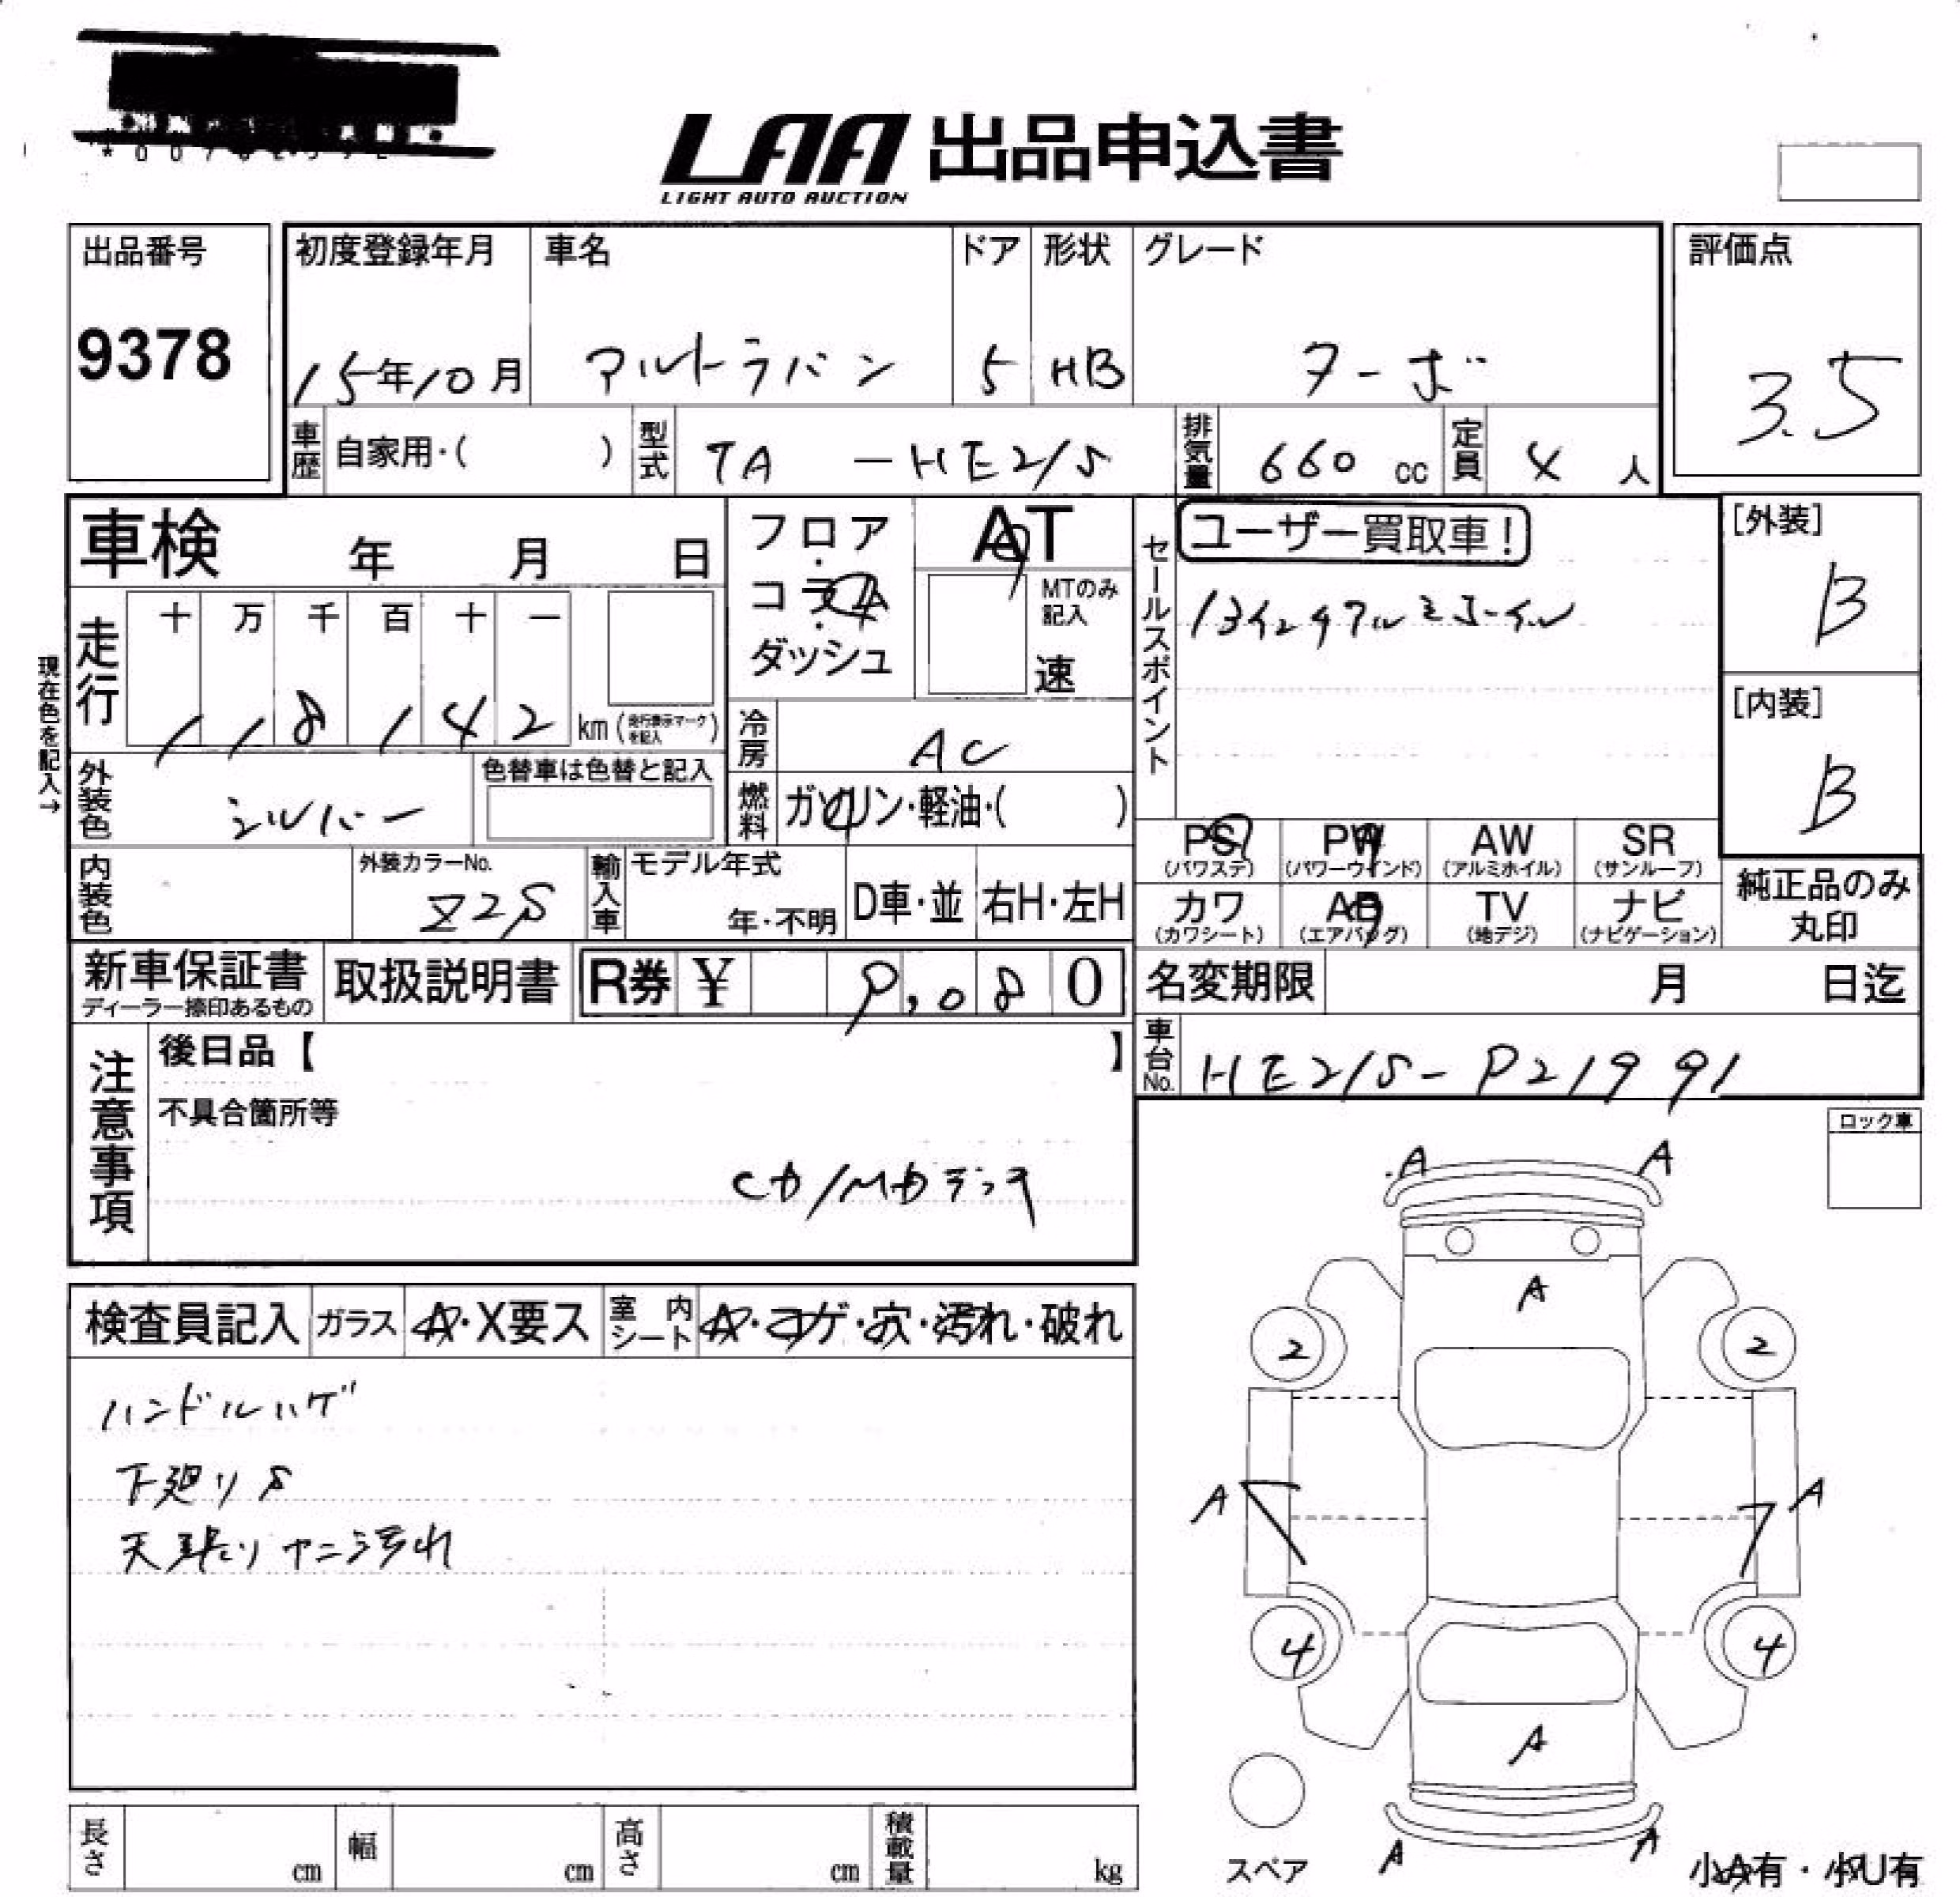 LAA 出品申込書
LIGHT AUTO AUCTION
出品番号
9378
初度登録年月
15年10月
車名
アルトラパン
ドア
5
形状
HB
グレード
ターボ
評価点
3.5
車歴
自家用・( )
型式
TA －HE21S
排気量
660 cc
定員
4 人
車検 年 月 日
フロア・コラム・ダッシュ
AT
MTのみ記入
速
セールスポイント
ユーザー買取車！
13インチアルミホイル
[外装]
B
[内装]
B
現在色を記入→
走行
十 万 千 百 十 一
1 1 8 1 4 2 km (走行表示マークを記入)
冷房
AC
外装色
シルバー
色替車は色替と記入
燃料
ガソリン・軽油・( )
内装色
外装カラーNo.
Z2S
輸入車
モデル年式
年・不明
D車・並
右H・左H
PS
(パワステ)
PW
(パワーウインド)
AW
(アルミホイル)
SR
(サンルーフ)
カワ
(カワシート)
AB
(エアバッグ)
TV
(地デジ)
ナビ
(ナビゲーション)
純正品のみ
丸印
新車保証書
ディーラー捺印あるもの
取扱説明書
R券 ¥ 9,080
名変期限 月 日迄
車台No.
HE21S-P21991
注意事項
後日品【 】
不具合箇所等
CD/MDデッキ
ロック車
検査員記入
ガラス
A・X要ス
室内シート
A・コゲ・穴・汚れ・破れ
ハンドルハゲ
下廻りS
天張りヤニ汚れ
A A
A
2 2
A A
4 4
A
スペア
A A
小A有・小U有
長さ cm
幅 cm
高さ cm
積載量 kg